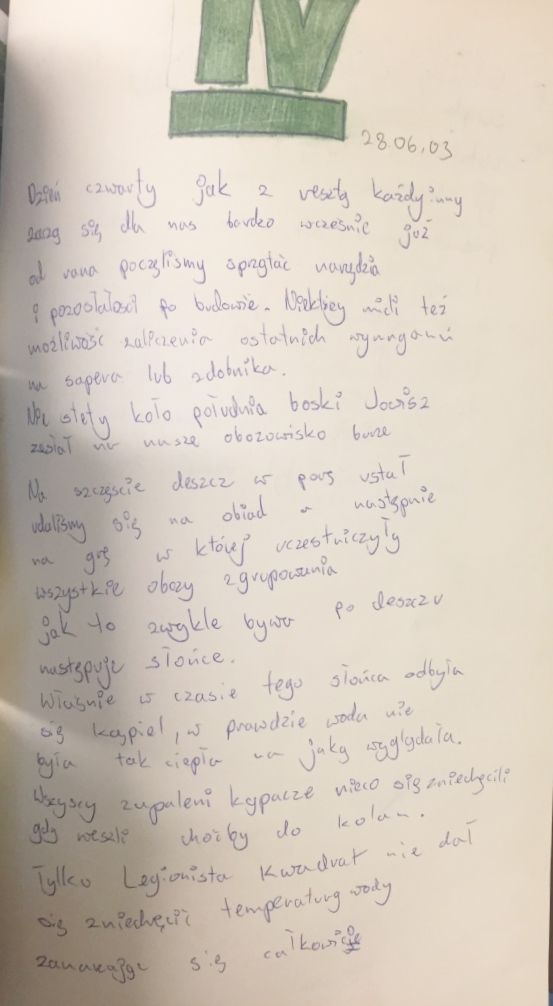 IV
28.06.03
Dzień czwarty jak z resztą każdy inny
zaczą się dla nas bardzo wcześnie już
od rana poczęlismy sprzątać narzędzia
i pozostałości po budowie. Niektórzy mieli też
możliwość zaliczenia ostatnich wymagań
na sapera lub zdobnika.
Nie stety koło południa boski Jowisz
zesłał na nasze obozowisko burze
Na szczęście deszcz w porę ustał
udaliśmy się na obiad a następnie
na grę w której uczestniczyły
wszystkie obozy zgrupowania
jak to zwykle bywa po deszczu
następuje słońce.
Właśnie w czasie tego słońca odbyła
się kąpiel, w prawdzie woda nie
była tak ciepła na jaką wyglądała.
Wszyscy zapaleni kąpacze nieco się zniechęcili
gdy weszli choćby do kolan.
Tylko Legionista Kwadrat nie dał
się zniechęcić temperaturą wody
zanurzając się całkowicie